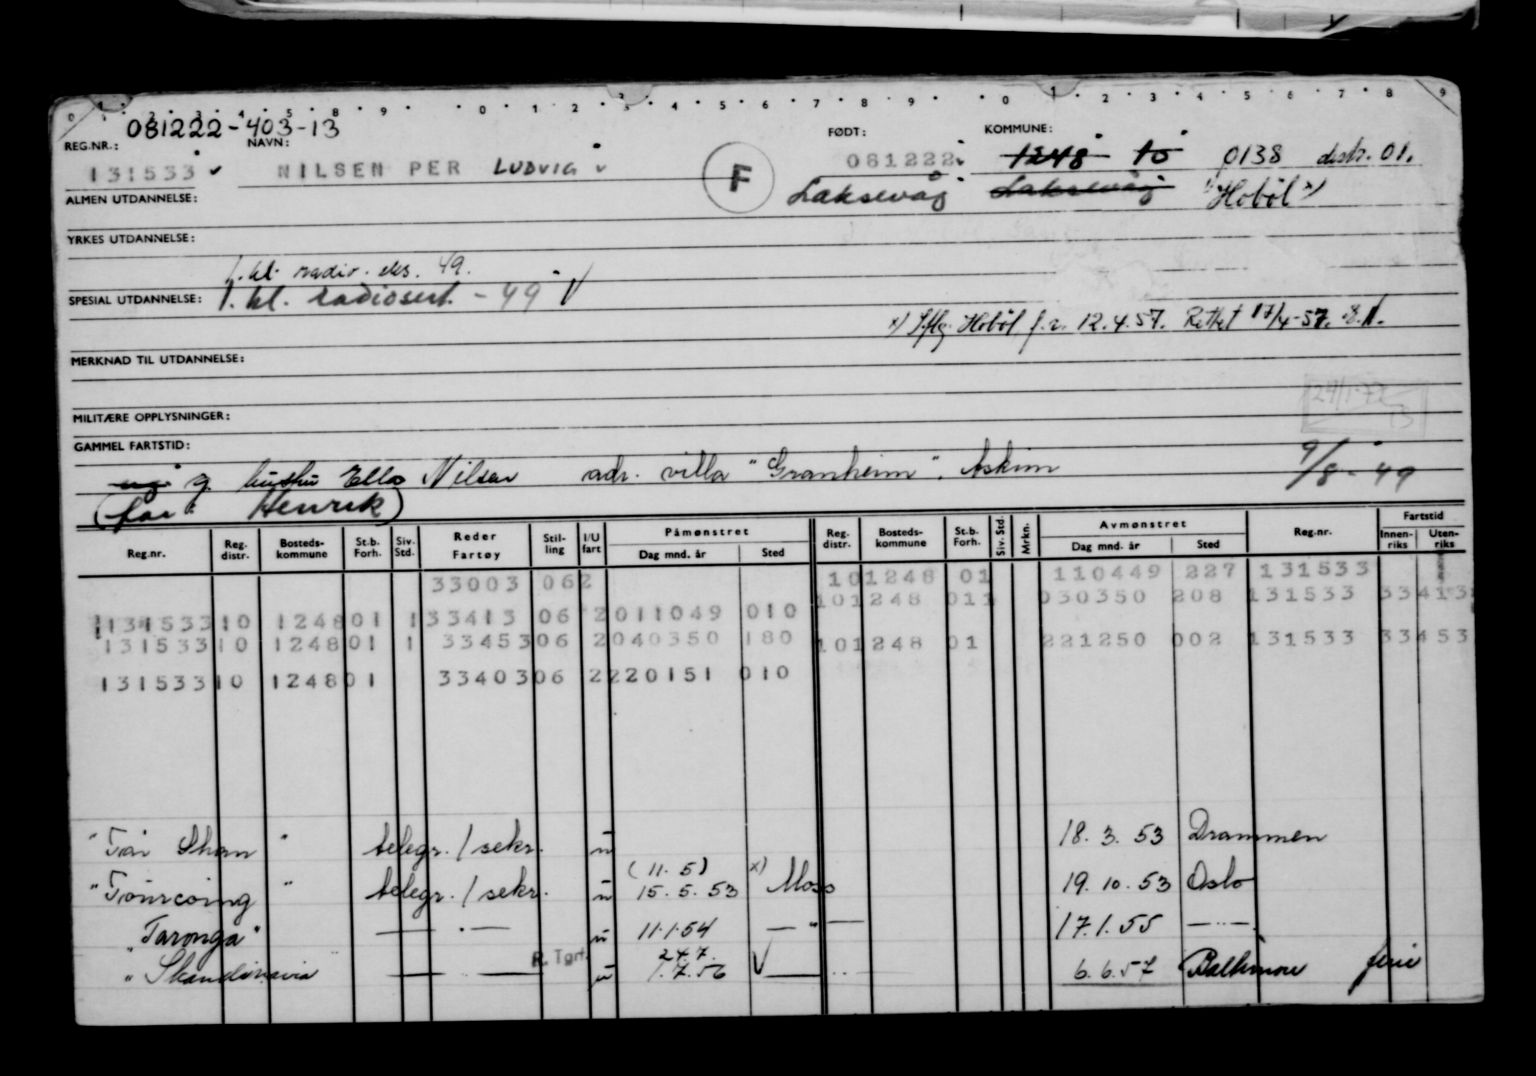 0 1 2 3 4 5 8 9 0 1 2 3 4 5 6 7 8 9 0 1 2 3 4 5 6 7 8 9
081222-403-13
REG.NR.: NAVN: FØDT: KOMMUNE:
131533 NILSEN PER LUDVIG F 081222 1248 10 0138 distr. 01.
ALMEN UTDANNELSE: Laksevåg Laksevåg Hobøl x)
YRKES UTDANNELSE:
1. kl. radio. eks. 49.
SPESIAL UTDANNELSE: 1. kl. radiosert. - 49
x) Hobøl f. 12.4.57. Rettet 17/4-57.
MERKNAD TIL UTDANNELSE:
MILITÆRE OPPLYSNINGER:
GAMMEL FARTSTID:
g. hustru Ella Nilsen adr. villa "Granheim". Askim 9/8-49
(far: Henrik)
Reg.nr. Reg. distr. Bosteds-kommune St.b. Forh. Siv. Std. Reder Fartøy Stil-ling I/U fart Påmønstret Dag mnd. år Sted Reg. distr. Bosteds-kommune St.b. Forh. Siv. Std. Mrkn. Avmønstret Dag mnd. år Sted Reg.nr. Fartstid Innen-riks Uten-riks
33003 062 101248 01 110449 227 131533
131533 10 1248 01 1 33413 06 2 011049 010 101248 011 030350 208 131533 33413
131533 10 1248 01 1 33453 06 2 040350 180 101248 01 221250 002 131533 33453
131533 10 1248 01 33403 06 2 220151 010
"Tai Shan" telegr./sekr. u 18.3.53 Drammen
(11.5) x)
"Tourcoing" telegr./sekr. u 15.5.53 Moss 19.10.53 Oslo
"Taronga" — " — u 11.1.54 — " — 17.1.55 — " —
R. Tgrf. 24.7.
"Skandinavia" — " — u 1.7.56 6.6.57 Baltimore ferie